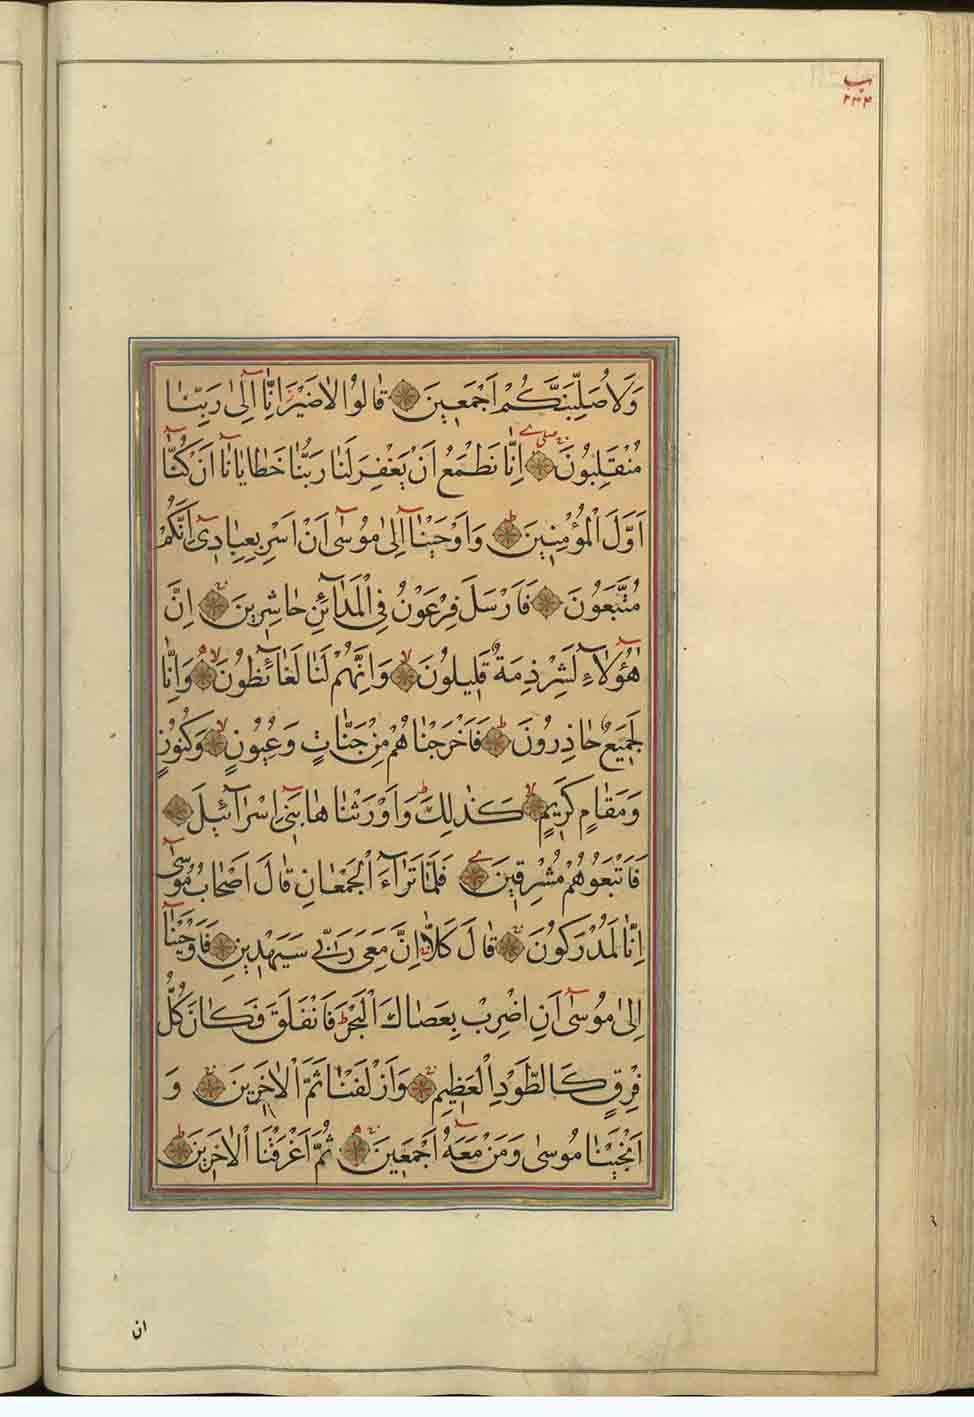 ب
٢٣٤
وَلَاُصَلِّبَنَّكُمْ اَجْمَعٖينَ قٰالُوا لٰا ضَيْرَ اِنّٰا اِلٰى رَبِّنٰا
مُنْقَلِبُونَ اِنّٰا نَطْمَعُ اَنْ يَغْفِرَ لَنٰا رَبُّنٰا خَطٰايٰانٰا اَنْ كُنّٰا
اَوَّلَ الْمُؤْمِنٖينَ وَاَوْحَيْنٰا اِلٰى مُوسٰى اَنْ اَسْرِ بِعِبٰادٖى اِنَّكُمْ
مُتَّبَعُونَ فَاَرْسَلَ فِرْعَوْنُ فِى الْمَدٰائِنِ حٰاشِرٖينَ اِنَّ
هٰؤُلٰاءِ لَشِرْذِمَةٌ قَلٖيلُونَ وَاِنَّهُمْ لَنٰا لَغٰائِظُونَ وَاِنّٰا
لَجَمٖيعٌ حٰاذِرُونَ فَاَخْرَجْنٰاهُمْ مِنْ جَنّٰاتٍ وَعُيُونٍ وَكُنُوزٍ
وَمَقٰامٍ كَرٖيمٍ كَذٰلِكَ وَاَوْرَثْنٰاهٰا بَنٖى اِسْرٰائٖيلَ
فَاَتْبَعُوهُمْ مُشْرِقٖينَ فَلَمّٰا تَرٰاءَ الْجَمْعٰانِ قٰالَ اَصْحٰابُ مُوسٰى
اِنّٰا لَمُدْرَكُونَ قٰالَ كَلّٰا اِنَّ مَعِىَ رَبّٖى سَيَهْدٖينِ فَاَوْحَيْنٰا
اِلٰى مُوسٰى اَنِ اضْرِبْ بِعَصٰاكَ الْبَحْرَ فَانْفَلَقَ فَكٰانَ كُلُّ
فِرْقٍ كَالطَّوْدِ الْعَظٖيمِ وَاَزْلَفْنٰا ثَمَّ الْاٰخَرٖينَ وَ
اَنْجَيْنٰا مُوسٰى وَمَنْ مَعَهُ اَجْمَعٖينَ ثُمَّ اَغْرَقْنَا الْاٰخَرٖينَ
ان